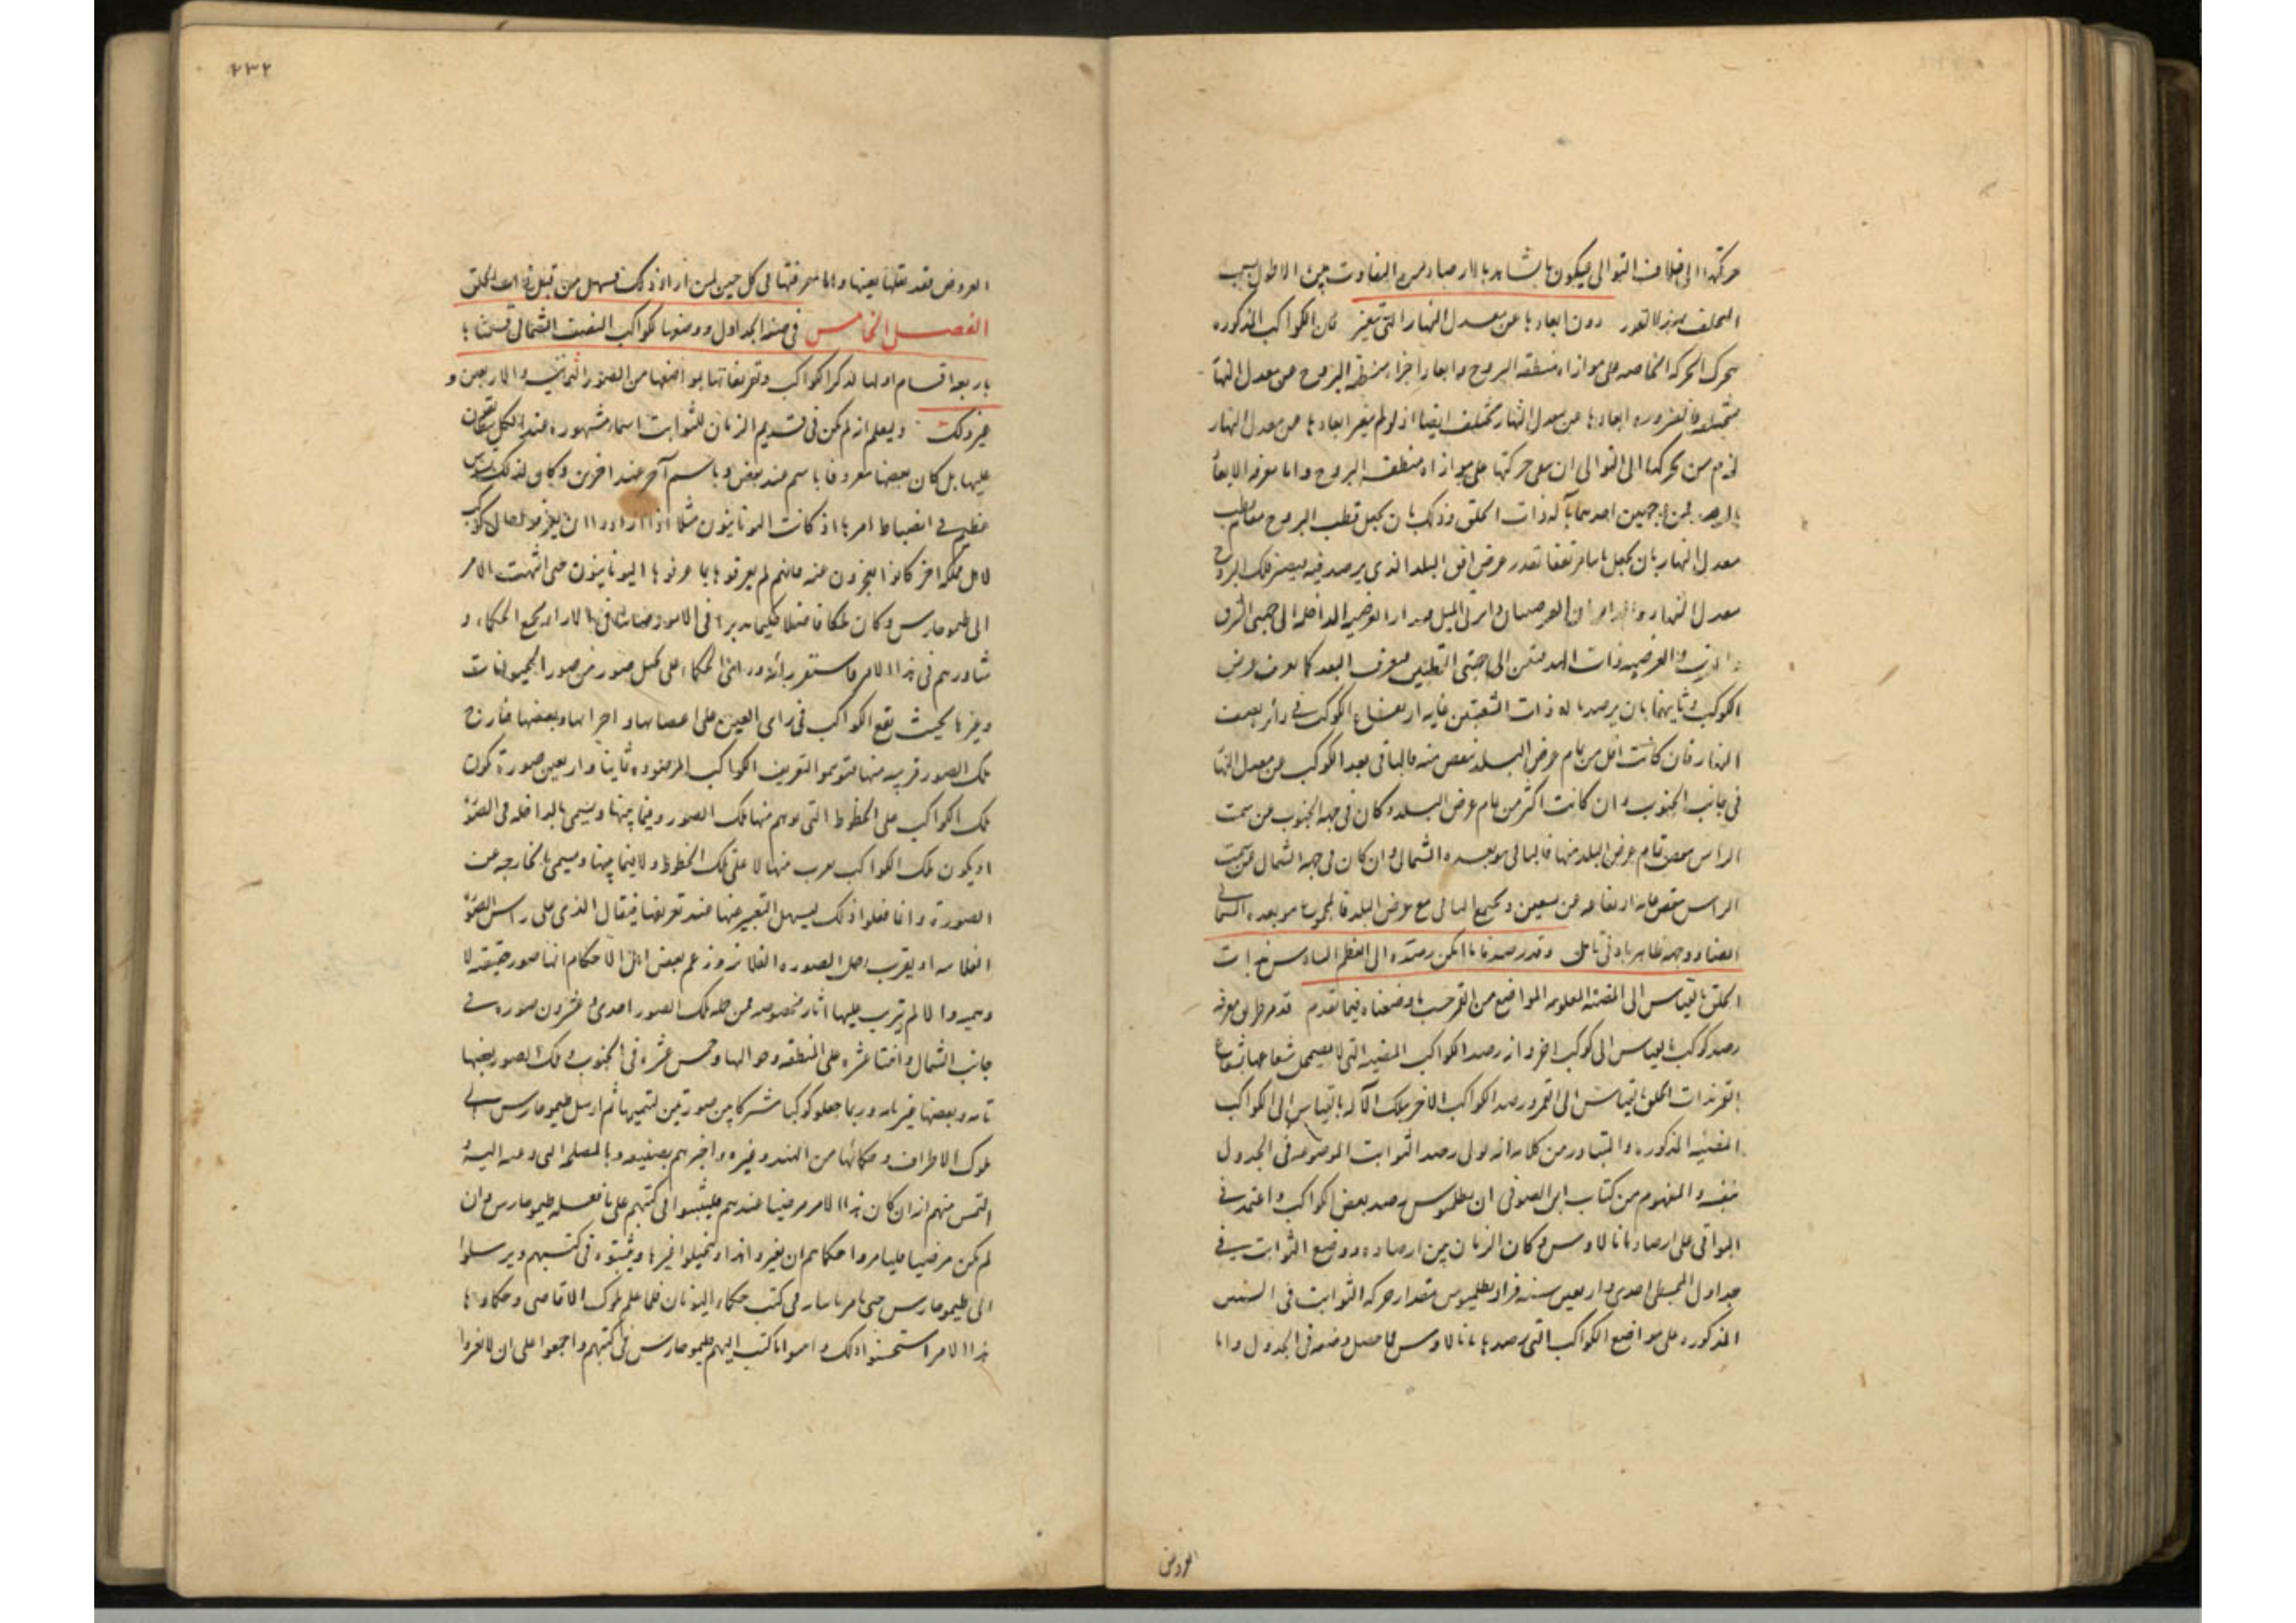 حركتها الى خلاف التوالى فيكون ما يشاهد بالارصاد من التفاوت بين الاطوال بسبب
دون ابعادها عن معدل النهار التى تتغير فان الكواكب المذكوره
الحركه الخاصه على موازاه منطقه البروج وابعاد اجزاء منطقه البروج عن معدل النها
مختلفه فبالضروره ابعادها عن معدل النهار تختلف ايضا اذ لو لم يتغير ابعادها عن معدل النهار
لزم من تحركها الى التوالى ان على حركتها على موازاه منطقه البروج واما معرفه الابعاد
احدهما بآله ذات الحلق وذلك بان يجعل قطب البروج
معدل النهار بان يجعل مرتفعا بقدر عرض افق البلد الذى يرصد فيه فيصير فلك البروج
معدل النهار الداخله الى جهتى الشرق
الى جهتى القطبين فيعرف البعد كما يعرف عرض
الكوكب وثانيهما بان يرصد باله ذات الشعبتين غايه ارتفاع الكوكب فى دائره نصف
النهار فان كانت اقل من تمام عرض البلد نقص منه فالباقى بعد الكوكب عن معدل النها
فى جانب الجنوب وان كانت اكثر من تمام عرض البلد وكان فى جهه الجنوب عن سمت
الراس نقص تمام عرض البلد منها فالباقى هو بعده الشمالى وان كان فى جهه الشمال عن سمت
الراس نقص غايه ارتفاعه من تسعين وتجمع الباقى مع عرض البلد فالمجموع هو بعده الشما
ايضا ووجهه ظاهر بادنى تامل وقد رصدنا ما امكن رصده الى العظم السادس بذات
الحلق بالقياس الى المضيئه المعلومه المواضع من القمر حسب ما وضعناه فيما تقدم قد مر طريق معرفه
رصد كوكب بالقياس الى كوكب اخر وانه رصد الكواكب المضيئه التى لا يضمحل شعاعها بشعاع
القمر بذات الحلق بالقياس الى القمر ورصد الكواكب الاخر بتلك الآله بالقياس الى الكواكب
المضيئه المذكوره والمتبادر من كلامه انه تولى رصد الثوابت الموضوعه فى الجدول
بنفسه والمفهوم من كتاب ابن الصوفى ان بطلميوس رصد بعض الكواكب واعتمد فى
البواقى على ارصاد مانالاوس وكان الزمان بين ارصاده ووضع الثوابت فى
جداول المجسطى احدى واربعين سنه فزاد بطلميوس مقدار حركه الثوابت فى السنين
المذكوره على مواضع الكواكب التى رصدها مانالاوس فما حصل وضعه فى الجدول واما
العروض
٢٣٢
العروض فقد نقلها بعينها واما معرفتها فى كل حين لمن اراد ذلك فسهل من قبل ذات الحلق
الفصل الخامس فى صنعه الجداول ووضعها لكواكب النصف الشمالى قسمناها
باربعه اقسام اولها لذكر الكواكب وتعريفاتها بمواضعها من الصور الثمانيه والاربعين و
غير ذلك وليعلم انه لم يكن فى قديم الزمان للثوابت اسماء مشهوره عند الكل يتفقان
عليها بل كان بعضها معروفا باسم عند بعض وباسم آخر عند اخرين وكان لذلك تشويش
عظيم فى انضباط امرها اذ كانت اليونانيون مثلا اذا ارادوا ان يخبروا بحال كوكب
لاهل مملكه اخر كانوا يعجزون عنه فانهم لم يعرفوها بما عرفوها اليونانيون حتى انتهت الامر
الى طيموخارس وكان ملكا فاضلا حكيما مدبرا فى الامور صائبا فى الاراء فجمع الحكماء و
شاورهم فى هذا الامر فاستقر رايه وراى الحكماء على تخيل صور من صور الحيوانات
وغيرها بحيث يقع الكواكب فى راى العين على اعضائها واجزائها وبعضها خارج
تلك الصور قريبه منها فتوهموا لتعريف الكواكب المرصوده ثمانيا واربعين صورة تكون
تلك الكواكب على الخطوط التى توهم منها تلك الصور وفيما بينها ويسمى بالداخله فى الصوره
او يكون تلك الكواكب بقرب منها لا على تلك الخطوط ولا فيما بينها ويسمى بالخارجه عن
الصورة وانما فعلوا ذلك ليسهل التعبير عنها عند تعريفها فيقال الذى على راس الصوره
الفلانيه او بقرب رجل الصوره الفلانيه وزعم بعض اهل الاحكام انها صور حقيقيه لا
وهميه والا لم يترتب عليها اثار مخصوصه فمن جمله تلك الصور احدى وعشرون صوره فى
جانب الشمال واثنتا عشره على المنطقه وحواليها وخمس عشره فى الجنوب وتلك الصور بعضها
تامه وبعضها غير تامه وربما جعلوا كوكبا مشتركا بين صورتين لتتميمها ثم ارسل طيموخارس الى
ملوك الاطراف وحكمائها من الهند وغيره واخبرهم بصنيعه وبالمصلحه التى دعته اليه و
التمس منهم انه ان كان هذا الامر مرضيا عندهم فليثبتوا فى كتبهم على ما فعله طيموخارس وان
لم يكن مرضيا فليامروا حكماءهم ان يغيروا هذا ويتخيلوا غيرها ويثبتوه فى كتبهم ويرسلوا
الى طيموخارس حتى يامر باثباته فى كتب حكماء اليونان فلما علم ملوك الاقاصى وحكماؤها
هذا الامر استحسنوا ذلك واثبتوا ما كتب اليهم طيموخارس فى كتبهم واجمعوا على ان لا يغيروا